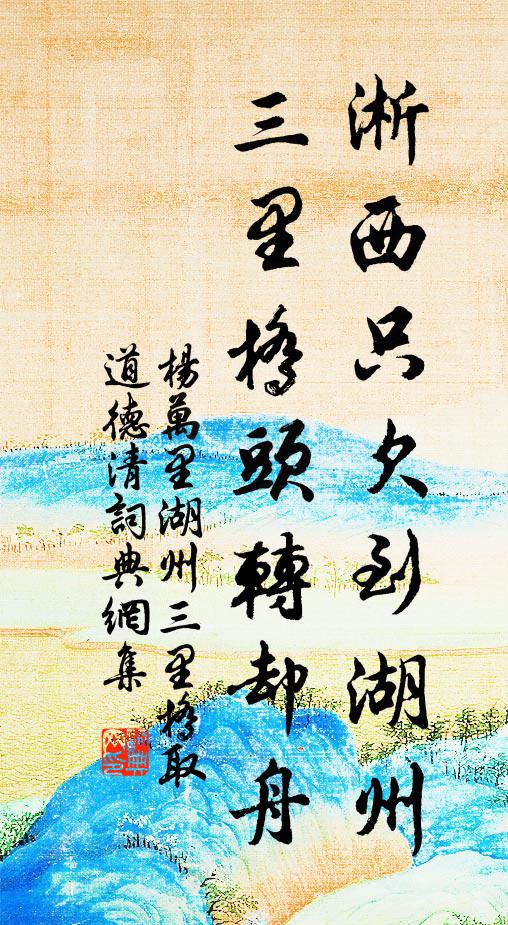 淅西只欠到湖州
三里橋頭轉却舟
楊萬里湖州三里橋取
道德清詞典網集